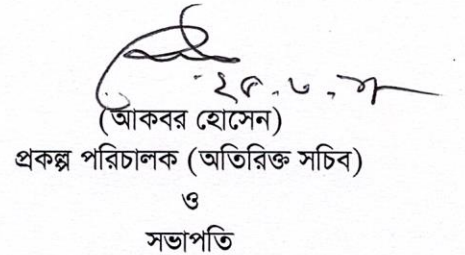 (আকবর হোসেন)
প্রকল্প পরিচালক (অতিরিক্ত সচিব)
ও
সভাপতি